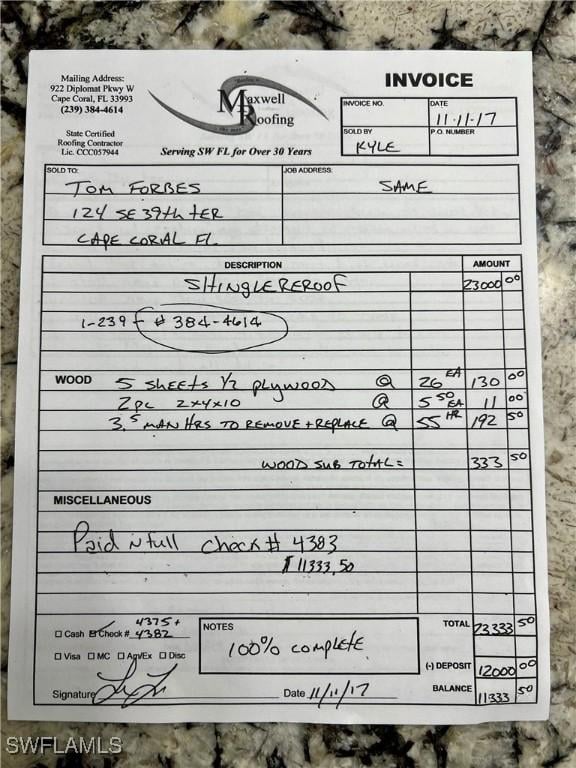 Mailing Address:
922 Diplomat Pkwy W
Cape Coral, FL 33993
(239) 384-4614
State Certified
Roofing Contractor
Lic. CCC057944
Maxwell
Roofing
Serving SW FL for Over 30 Years
INVOICE
INVOICE NO.
DATE
11-11-17
SOLD BY
KYLE
P.O. NUMBER
SOLD TO:
TOM FORBES
124 SE 39th tER
CAPE CORAL FL
JOB ADDRESS:
SAME
DESCRIPTION AMOUNT
SHINGLE REROOF 23000 00
1-239- # 384-4614
WOOD 5 SHEETS 1/2 PLYWOOD @ 26 EA 130 00
2pc 2x4x10 @ 5 50 EA 11 00
3.5 MAN HRS TO REMOVE + REPLACE @ 55 HR 192 50
WOOD SUB TOTAL = 333 50
MISCELLANEOUS
Paid n full check # 4383
$ 11333.50
4375 +
☐ Cash ☑ Check # 4382
☐ Visa ☐ MC ☐ AmEx ☐ Disc
Signature
NOTES
100% COMPLETE
Date 11/11/17
TOTAL 23333 50
(-) DEPOSIT 12000 00
BALANCE 11333 50
SWFLAMLS